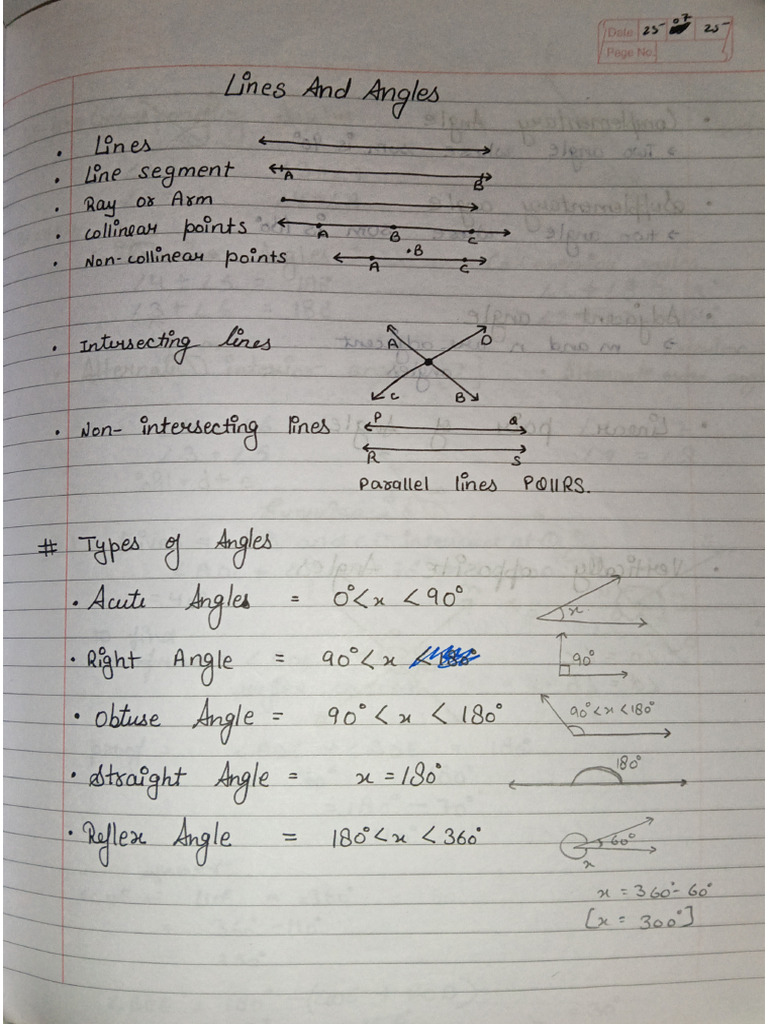 Date 25-07 25-
Page No.
Lines And Angles
• Lines
• Line segment A B
• Ray or Arm
• Collinear points A B C
• Non-collinear points A •B C
• Intersecting lines A D C B
• Non-intersecting lines P Q
R S
Parallel lines PQIIRS.
# Types of Angles
• Acute Angles = 0°<x <90° x
• Right Angle = 90°<x 90°
• Obtuse Angle = 90°<x <180° 90°<x<180°
• Straight Angle = x=180° 180°
• Reflex Angle = 180°<x <360° 60°
x
x = 360°-60°
[x = 300°]